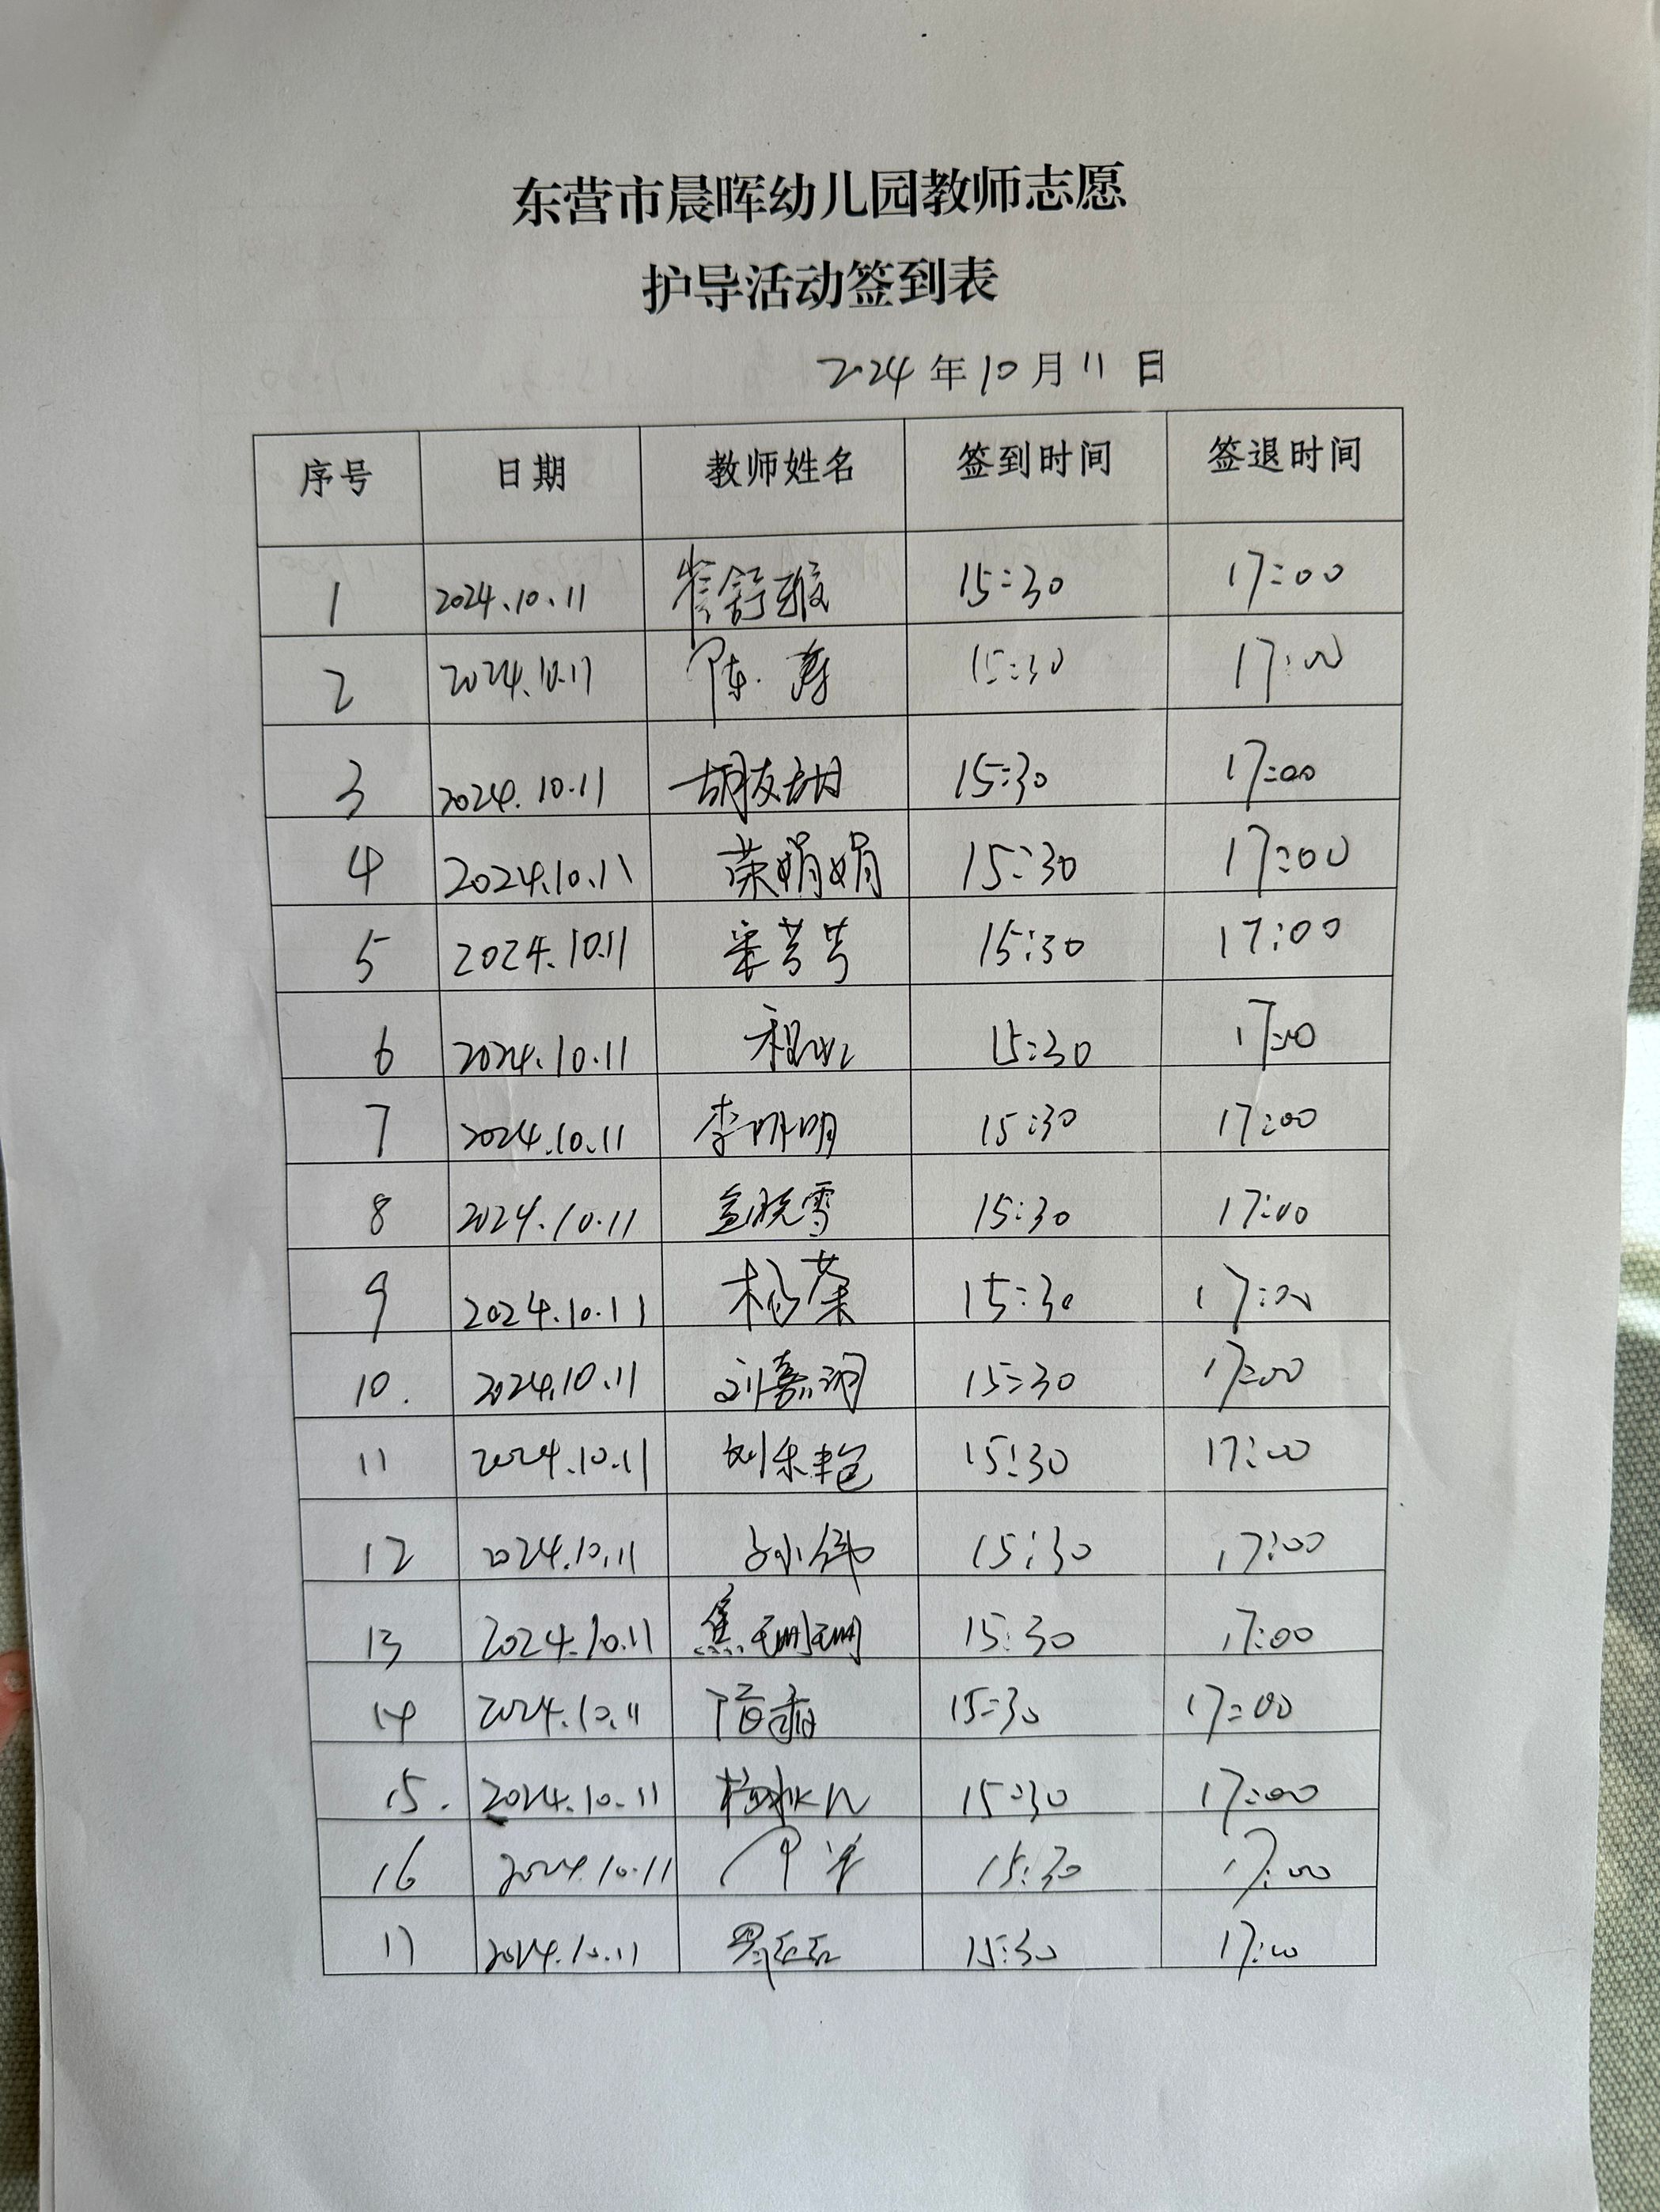 东营市晨晖幼儿园教师志愿
护导活动签到表
2024年10月11日
序号 日期 教师姓名 签到时间 签退时间
1 2024.10.11 崔舒璇 15:30 17:00
2 2024.10.11 陈涛 15:30 17:00
3 2024.10.11 胡友甜 15:30 17:00
4 2024.10.11 荣娟娟 15:30 17:00
5 2024.10.11 芳芳 15:30 17:00
6 2024.10.11 15:30 17:00
7 2024.10.11 李明明 15:30 17:00
8 2024.10.11 盖晓雪 15:30 17:00
9 2024.10.11 杨荣 15:30 17:00
10. 2024.10.11 刘嘉润 15:30 17:00
11 2024.10.11 刘乐艳 15:30 17:00
12 2024.10.11 孙小伟 15:30 17:00
13 2024.10.11 焦珊珊 15:30 17:00
14 2024.10.11 15:30 17:00
15. 2024.10.11 15:30 17:00
16 2024.10.11 15:30 17:00
17 2024.10.11 15:30 17:00